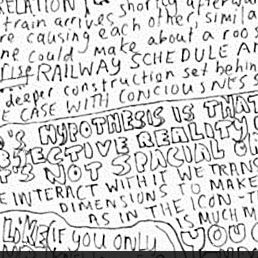 RELATION shortly afterwa
train arrives each other, simila
re causing each about a roos
ne could make
RAILWAY SCHEDULE A
deeper construction set behin
E CASE WITH CONCIOUSNESS
'S HYPOTHESIS IS THAT
BJECTIVE REALITY
T'S NOT SPACIAL OR
E INTERACT WITH IT WE TRANS
DIMENSIONS TO MAKE
AS IN THE ICON - T
IS MUCH M
LIKE IF YOU ONLY YOU